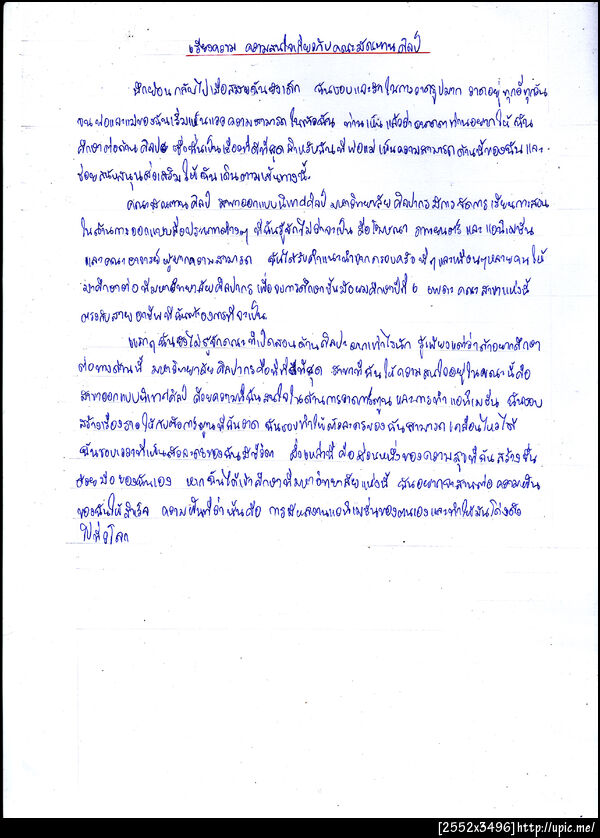 เรียงความ ความสนใจเกี่ยวกับคณะมัณฑนศิลป์
นึกย้อนกลับไปเมื่อสมัยฉันยังเด็ก ฉันชอบและรักในการวาดรูปมาก วาดอยู่ทุกวี่ทุกวัน
จนพ่อและแม่ของฉันเริ่มเห็นแววความสามารถในตัวฉัน ท่านเห็นแล้วว่าอนาคตท่านอยากให้ฉัน
ศึกษาต่อด้านศิลปะ ซึ่งเป็นเรื่องที่ดีที่สุดสำหรับฉันที่พ่อแม่เห็นความสามารถด้านนี้ของฉันและ
ช่วยสนับสนุนส่งเสริมให้ฉันเดินตามเส้นทางนี้.
คณะมัณฑนศิลป์ สาขาออกแบบนิเทศศิลป์ มหาวิทยาลัยศิลปากร มีการจัดการเรียนการสอน
ในด้านการออกแบบสื่อประเภทต่างๆ ที่ฉันรู้จักไม่ว่าจะเป็น สื่อโฆษณา ภาพยนตร์ และ แอนิเมชั่น
และคณะอาจารย์ผู้มากความสามารถ ฉันได้รับคำแนะนำจากครอบครัว พี่ๆ และเพื่อนๆหลายคนให้
มาศึกษาต่อที่มหาวิทยาลัยศิลปากร เพื่อจบการศึกษาชั้นมัธยมศึกษาปีที่ 6 เพราะคณะสาขาแห่งนี้
ตรงกับสายอาชีพที่ฉันต้องการที่จะเป็น.
แรกๆฉันยังไม่รู้จักคณะที่เปิดสอนด้านศิลปะมากเท่าไรนัก รู้เพียงแต่ว่าถ้าอยากศึกษา
ต่อทางด้านนี้ มหาวิทยาลัยศิลปากรคือที่ที่ดีที่สุด สาขาที่ฉันให้ความสนใจอยู่ในขณะนี้คือ
สาขาออกแบบนิเทศศิลป์ ด้วยความที่ฉันสนใจในด้านการวาดการ์ตูน และการทำแอนิเมชั่น ฉันชอบ
สร้างเรื่องราวให้กับตัวการ์ตูนที่ฉันวาด ฉันชอบทำให้ตัวละครของฉันสามารถเคลื่อนไหวได้
ฉันชอบเวลาที่เห็นตัวละครของฉันมีชีวิต สิ่งเหล่านี้คือส่วนหนึ่งของความสุขที่ฉันสร้างขึ้น
ด้วยมือของฉันเอง หากฉันได้เข้าศึกษาที่มหาวิทยาลัยแห่งนี้ ฉันอยากจะสานต่อความฝัน
ของฉันให้สำเร็จ ความฝันที่ว่านั้นคือ การมีผลงานแอนิเมชั่นของตนเองและทำให้มันโด่งดัง
ไปทั่วโลก
[2552x3496] http://upic.me/